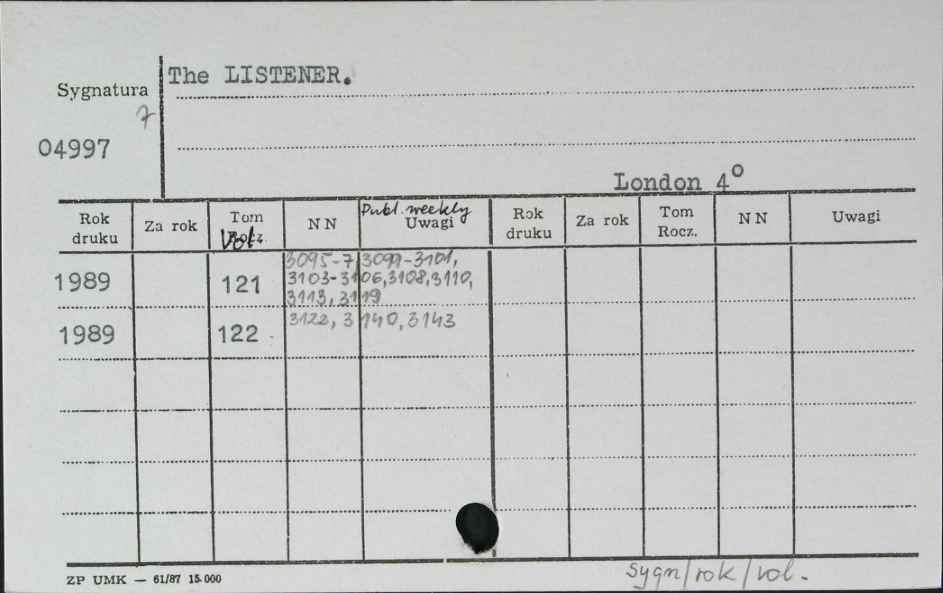 The LISTENER.
Sygnatura
7
04997
London 4°
Rok druku Za rok Tom Rocz. Vol. NN Publ. weekly Uwagi Rok druku Za rok Tom Rocz. NN Uwagi
1989 121 3095-7, 3099-3101,
3103-3106, 3108, 3110,
3113, 3119
1989 122 3122, 3140, 3143
ZP UMK — 61/87 15.000
Sygn/rok/vol.